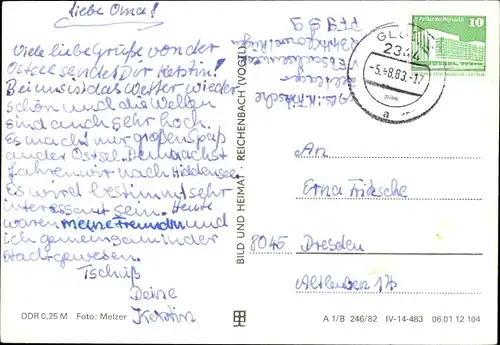 Liebe Oma!
Viele liebe Grüße von der
Ostsee sendet Dir Kerstin!
Bei uns ist das Wetter wieder
schön und die Wellen
sind auch sehr hoch.
Es macht mir großen Spaß
an der Ostsee. Demnächst
fahren wir nach Hiddensee.
Es wird bestimmt sehr
interessant sein. Heute
waren meine Freundin und
ich gemeinsam in der
Stadt gewesen.
Tschüß
Deine
Kerstin
DDR 0,25 M Foto: Melzer
BILD UND HEIMAT · REICHENBACH (VOGTL)
Abs.: K. Fritzsche
10
-5.-8.83-17
a
An
Erna Fritzsche
8045 Dresden
Altleuben 17b
A 1/B 246/82 IV-14-483 06 01 12 104